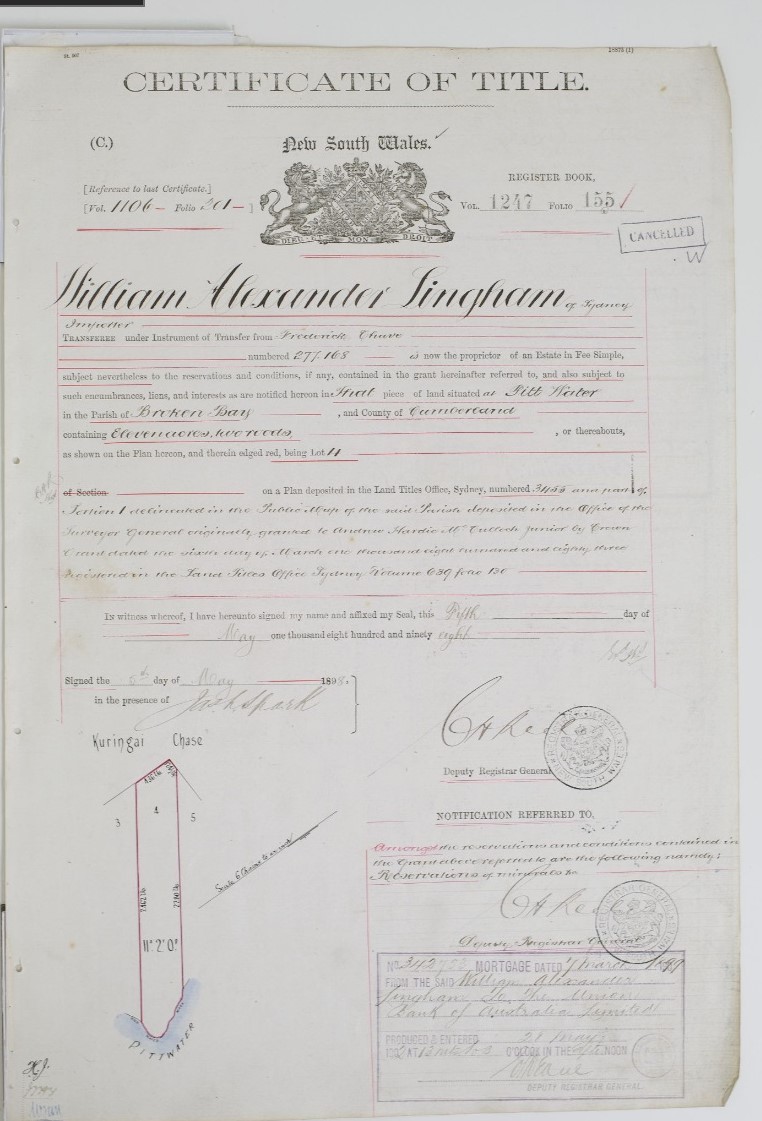 CERTIFICATE OF TITLE.
(C.)
New South Wales.
[Reference to last Certificate.]
[Vol. 1106 — Folio 201 — ]
DIEU ET MON DROIT
REGISTER BOOK,
VOL. 1247 FOLIO 155
CANCELLED
William Alexander Lingham of Sydney
Importer
TRANSFEREE under Instrument of Transfer from Frederick Chave
numbered 277168 is now the proprietor of an Estate in Fee Simple,
subject nevertheless to the reservations and conditions, if any, contained in the grant hereinafter referred to, and also subject to
such encumbrances, liens, and interests as are notified hereon in That piece of land situated at Pitt Water
in the Parish of Broken Bay , and County of Cumberland
containing Eleven acres, two roods, , or thereabouts,
as shown on the Plan hereon, and therein edged red, being Lot 4
of Section on a Plan deposited in the Land Titles Office, Sydney, numbered 3455 and part of
Section 1 delineated in the Public Map of the said Parish deposited in the Office of the
Surveyor General originally granted to Andrew Hardie McCulloch junior by Crown
Grant dated the sixth day of March one thousand eight hundred and eighty three
registered in the Land Titles Office Sydney Volume 639 folio 130
In witness whereof, I have hereunto signed my name and affixed my Seal, this Fifth day of
May one thousand eight hundred and ninety eight
Signed the 5th day of May 1898.
in the presence of
Deputy Registrar General
Kuringai Chase
3 4 5
11a 2r 0p
PITTWATER
Scale 6 Chains to an inch
NOTIFICATION REFERRED TO.
Amongst the reservations and conditions contained in
the Grant above referred to are the following namely:
Reservations of minerals &c
Deputy Registrar General
No. 342733 MORTGAGE DATED 7 March 1899
FROM THE SAID William Alexander
Lingham To The Union
Bank of Australia Limited
PRODUCED & ENTERED
O'CLOCK IN THE NOON
DEPUTY REGISTRAR GENERAL.